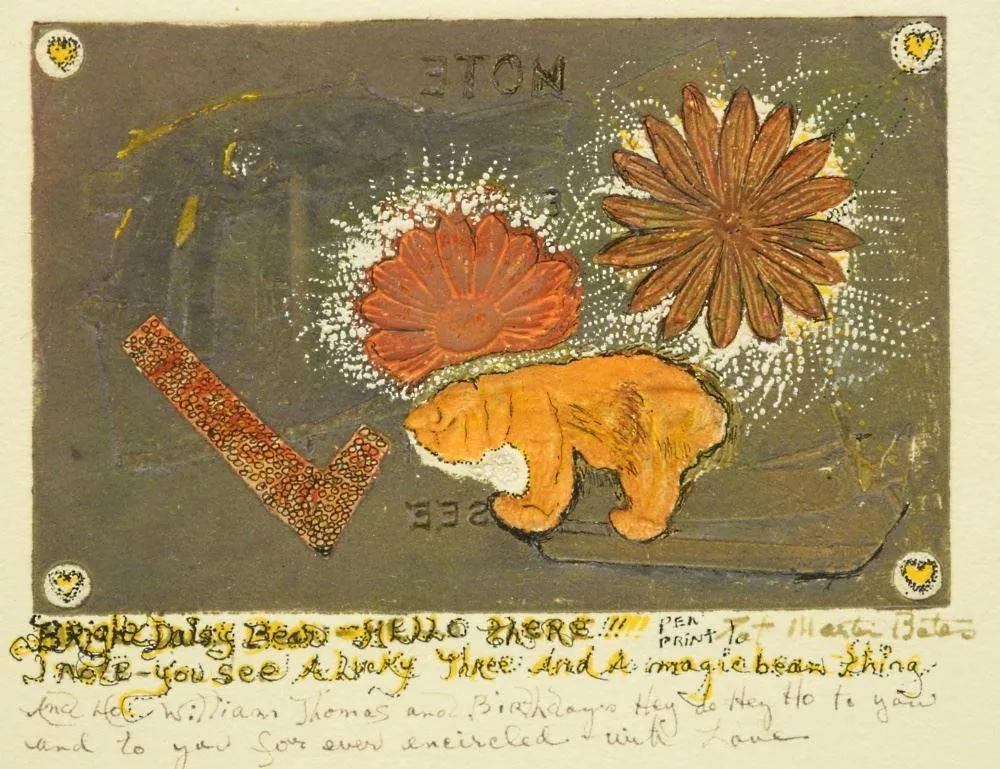 NOTE
SEE
Bright Daisy Bear - HELLO there!!! !!! PER PRINT Pat Martin Bates
I note - you see A Lucky Three And A magic bear thing
And Ho! William Thomas and Birthdays Hey de Hey Ho to you
and to you for ever encircled - with Love